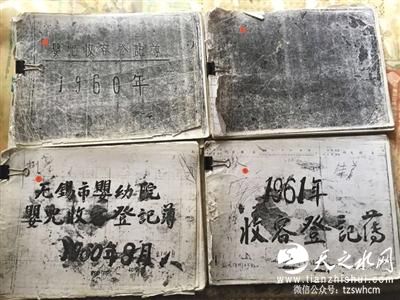 嬰兒收容登記簿
1960年
无錫市嬰幼院
嬰兒收容登記薄
1960年8月
1961年
收容登記薄
天之水网
www.tianzhishui.com
微信公众号:tzswhcm